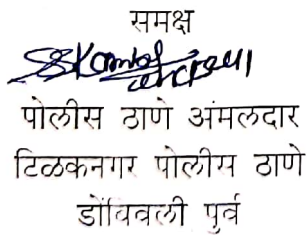 समक्ष
पोलीस ठाणे अंमलदार
टिळकनगर पोलीस ठाणे
डोंविवली पुर्व